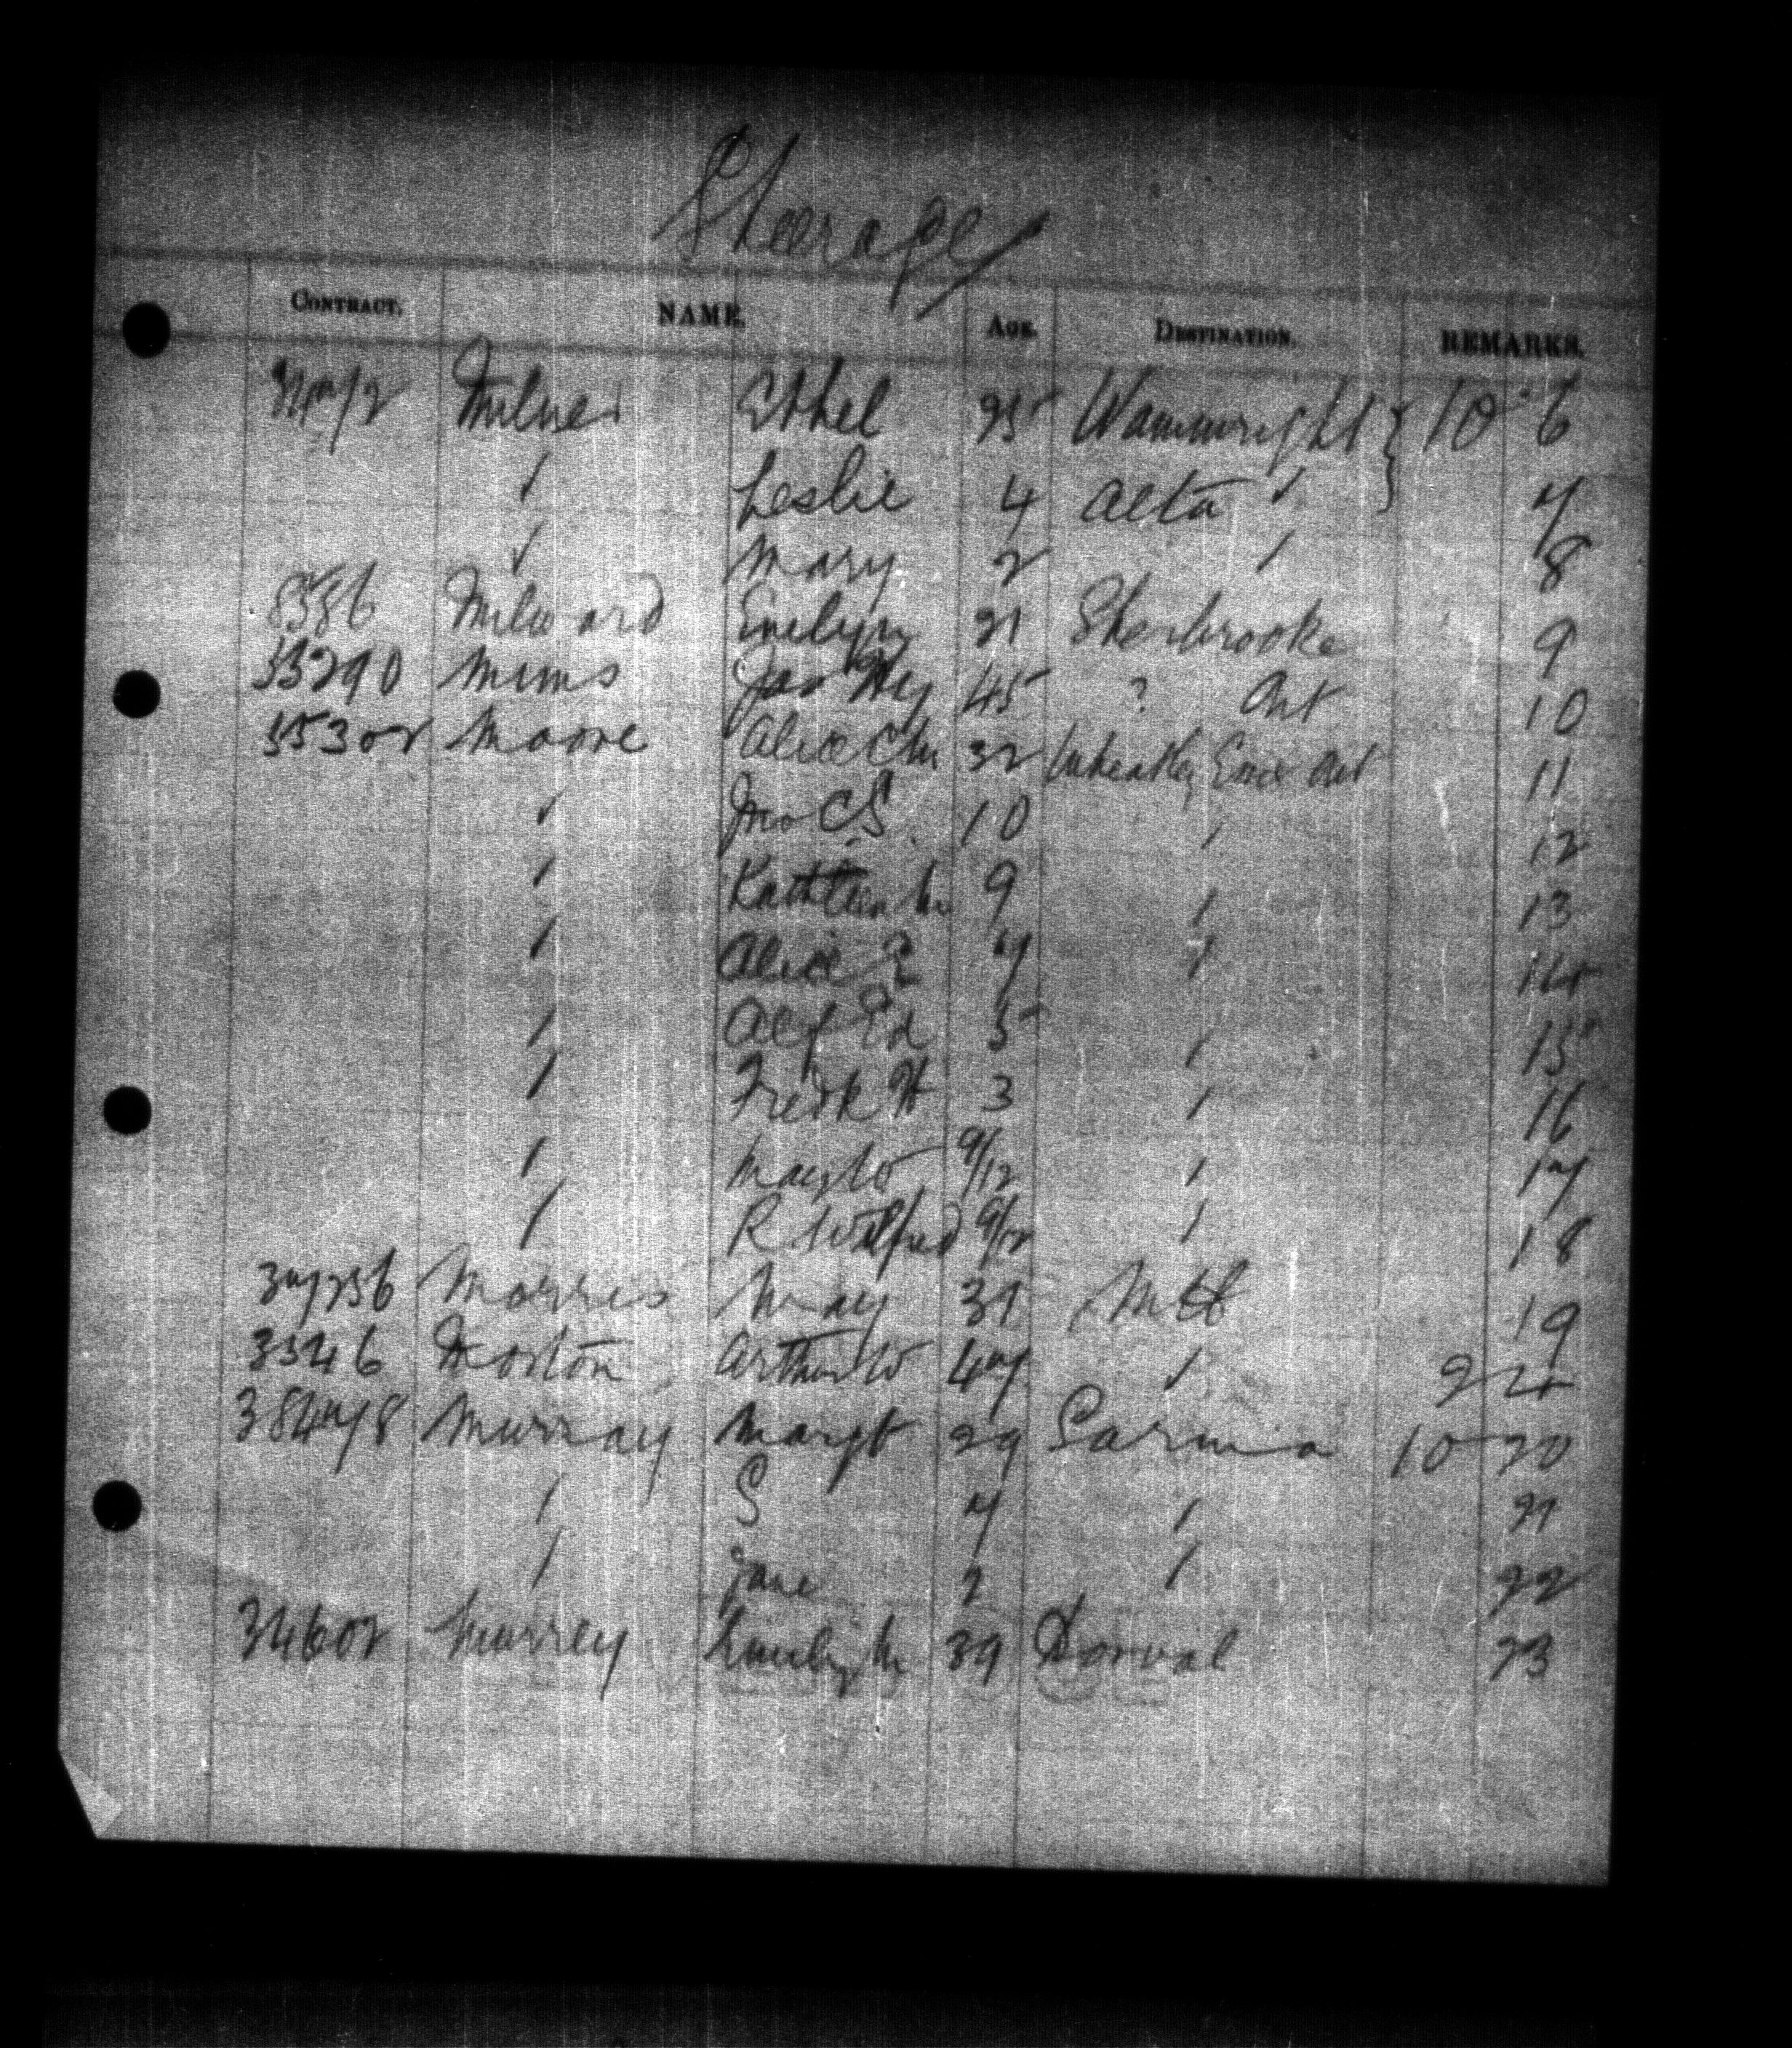 Steerage
CONTRACT. NAME. AGE. DESTINATION. REMARKS.
Milner Ethel 25 Wainwright } 10 6
" Leslie 4 Alta " 7
" Mary 2 " 8
8586 Milward Evelyn 21 Sherbrooke 9
55290 Mims Jas Hy 45 ? Ont 10
55302 Moore Alice Ch 32 Wheatley Essex Ont 11
" Jno C S. 10 " 12
" Kathleen M 9 " 13
" Alice E 7 " 14
" Alf Ed 5 " 15
" Fredk H 3 " 16
" May W 9/12 " 17
" R Wilfred 9/12 " 18
37256 Morris May 31 Mtl 19
3546 Morton Arthur W 47 " 9 24
38478 Murray Margt 29 Sarnia 10 20
" S 7 " 21
" Jane 2 " 22
34602 Murrey Emily M 39 Dorval 23